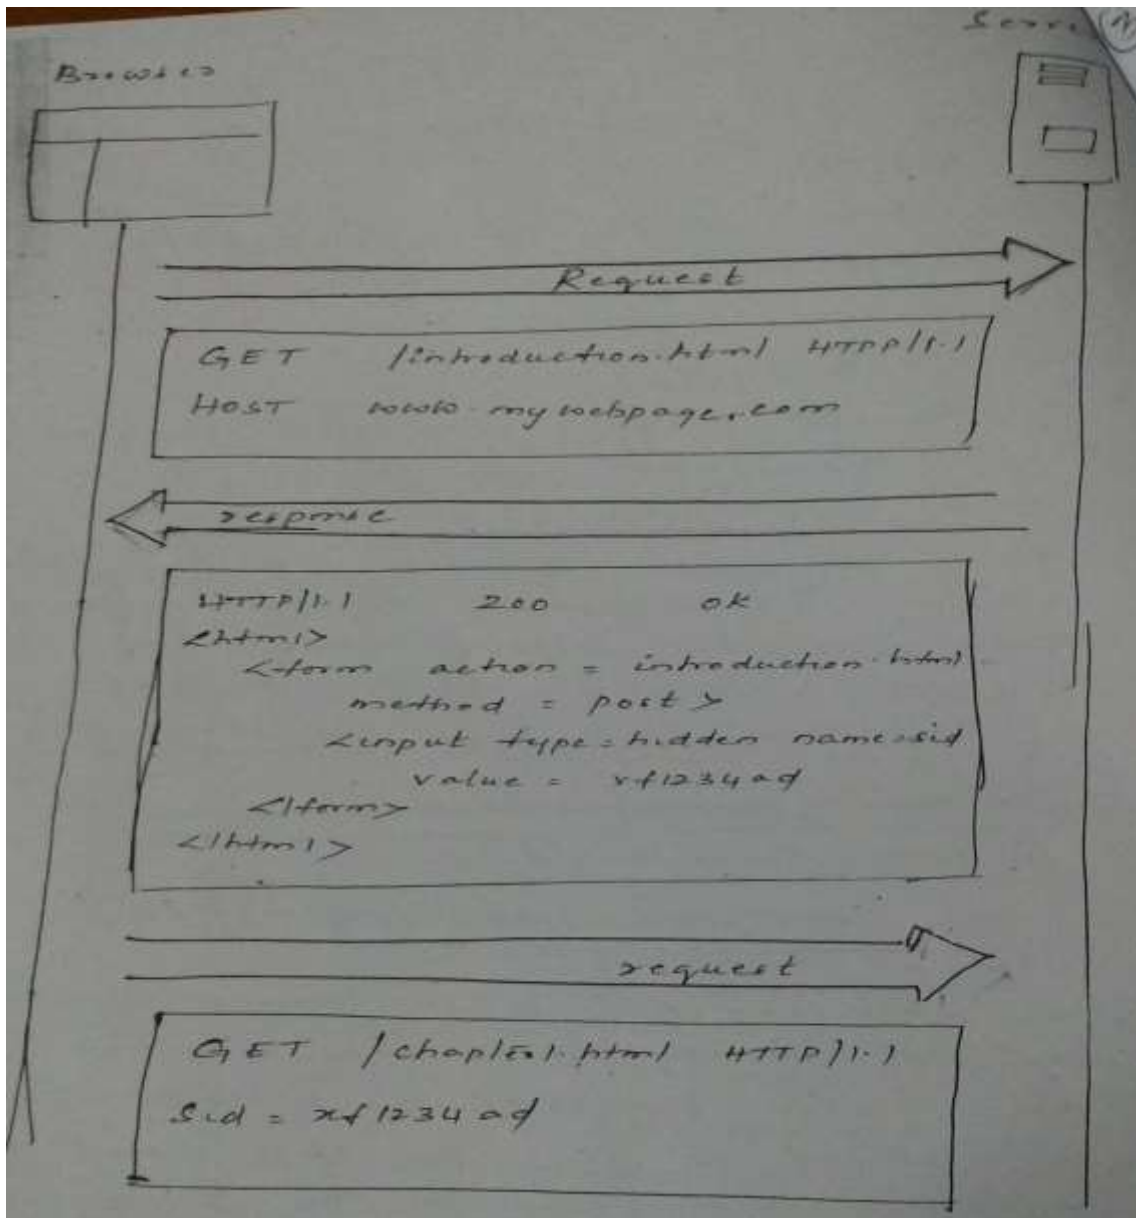 Browser
Request
GET /introduction.html HTTP/1.1
HOST www.mywebpage.com
response
HTTP/1.1 200 ok
<html>
<form action = introduction.html
method = post >
<input type=hidden name=sid
value = xf1234ad
</form>
</html>
request
GET /chapter1.html HTTP/1.1
Sid = xf1234ad